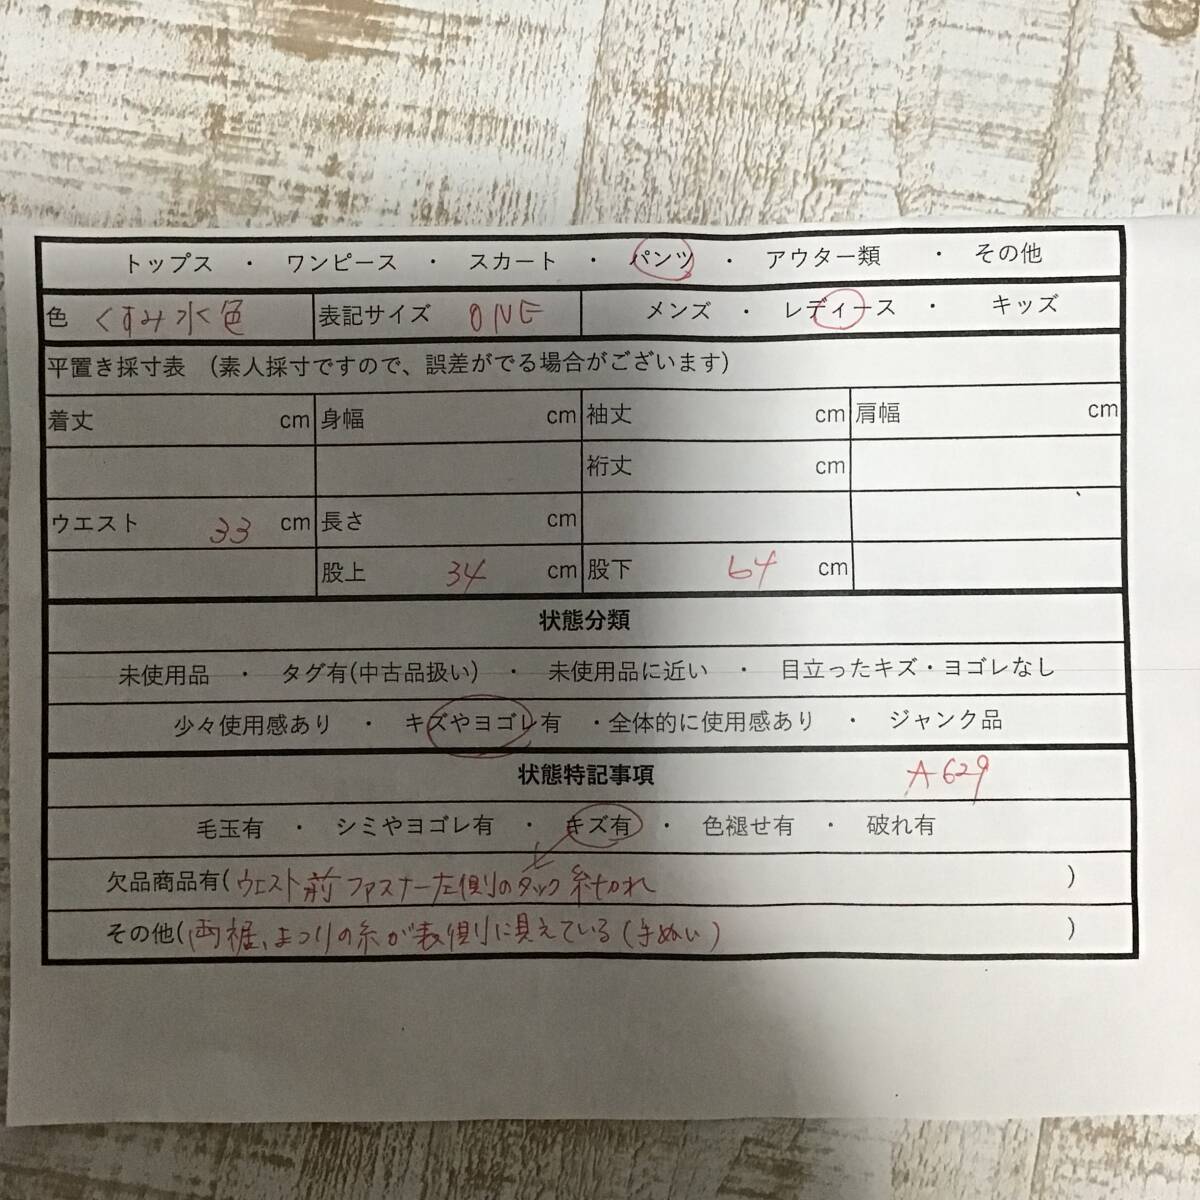 トップス ・ ワンピース ・ スカート ・ パンツ ・ アウター類 ・ その他
色 くすみ水色 表記サイズ ONE メンズ ・ レディース ・ キッズ
平置き採寸表 (素人採寸ですので、誤差がでる場合がございます)
着丈 cm 身幅 cm 袖丈 cm 肩幅 cm
裄丈 cm
ウエスト 33 cm 長さ cm
股上 34 cm 股下 64 cm
状態分類
未使用品 ・ タグ有(中古品扱い) ・ 未使用品に近い ・ 目立ったキズ・ヨゴレなし
少々使用感あり ・ キズやヨゴレ有 ・全体的に使用感あり ・ ジャンク品
状態特記事項 A629
毛玉有 ・ シミやヨゴレ有 ・ キズ有 ・ 色褪せ有 ・ 破れ有
欠品商品有(ウエスト前ファスナー左側のタック糸切れ )
その他(両裾、まつりの糸が表側に見えている(手ぬい) )